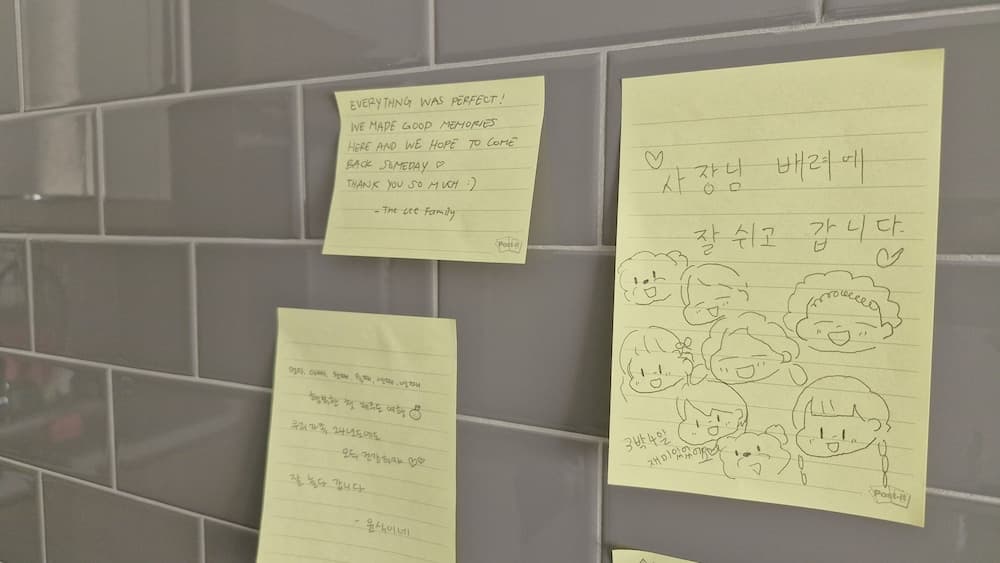 EVERYTHNG WAS PERFECT!
WE MADE GOOD MEMORIES
HERE AND WE HOPE TO COME
BACK SOMEDAY ♡
THANK YOU SO MUCH :)
- The Lee Family
Post-it
♡ 사장님 배려에
잘 쉬고 갑니다. ♡
3박4일
재미있었어요♡
Post-it
행복한 첫 제주도 여행
우리가족 24년도에도
모두 건강하자 ♡♡
잘 놀다 갑니다
- 윤식이네